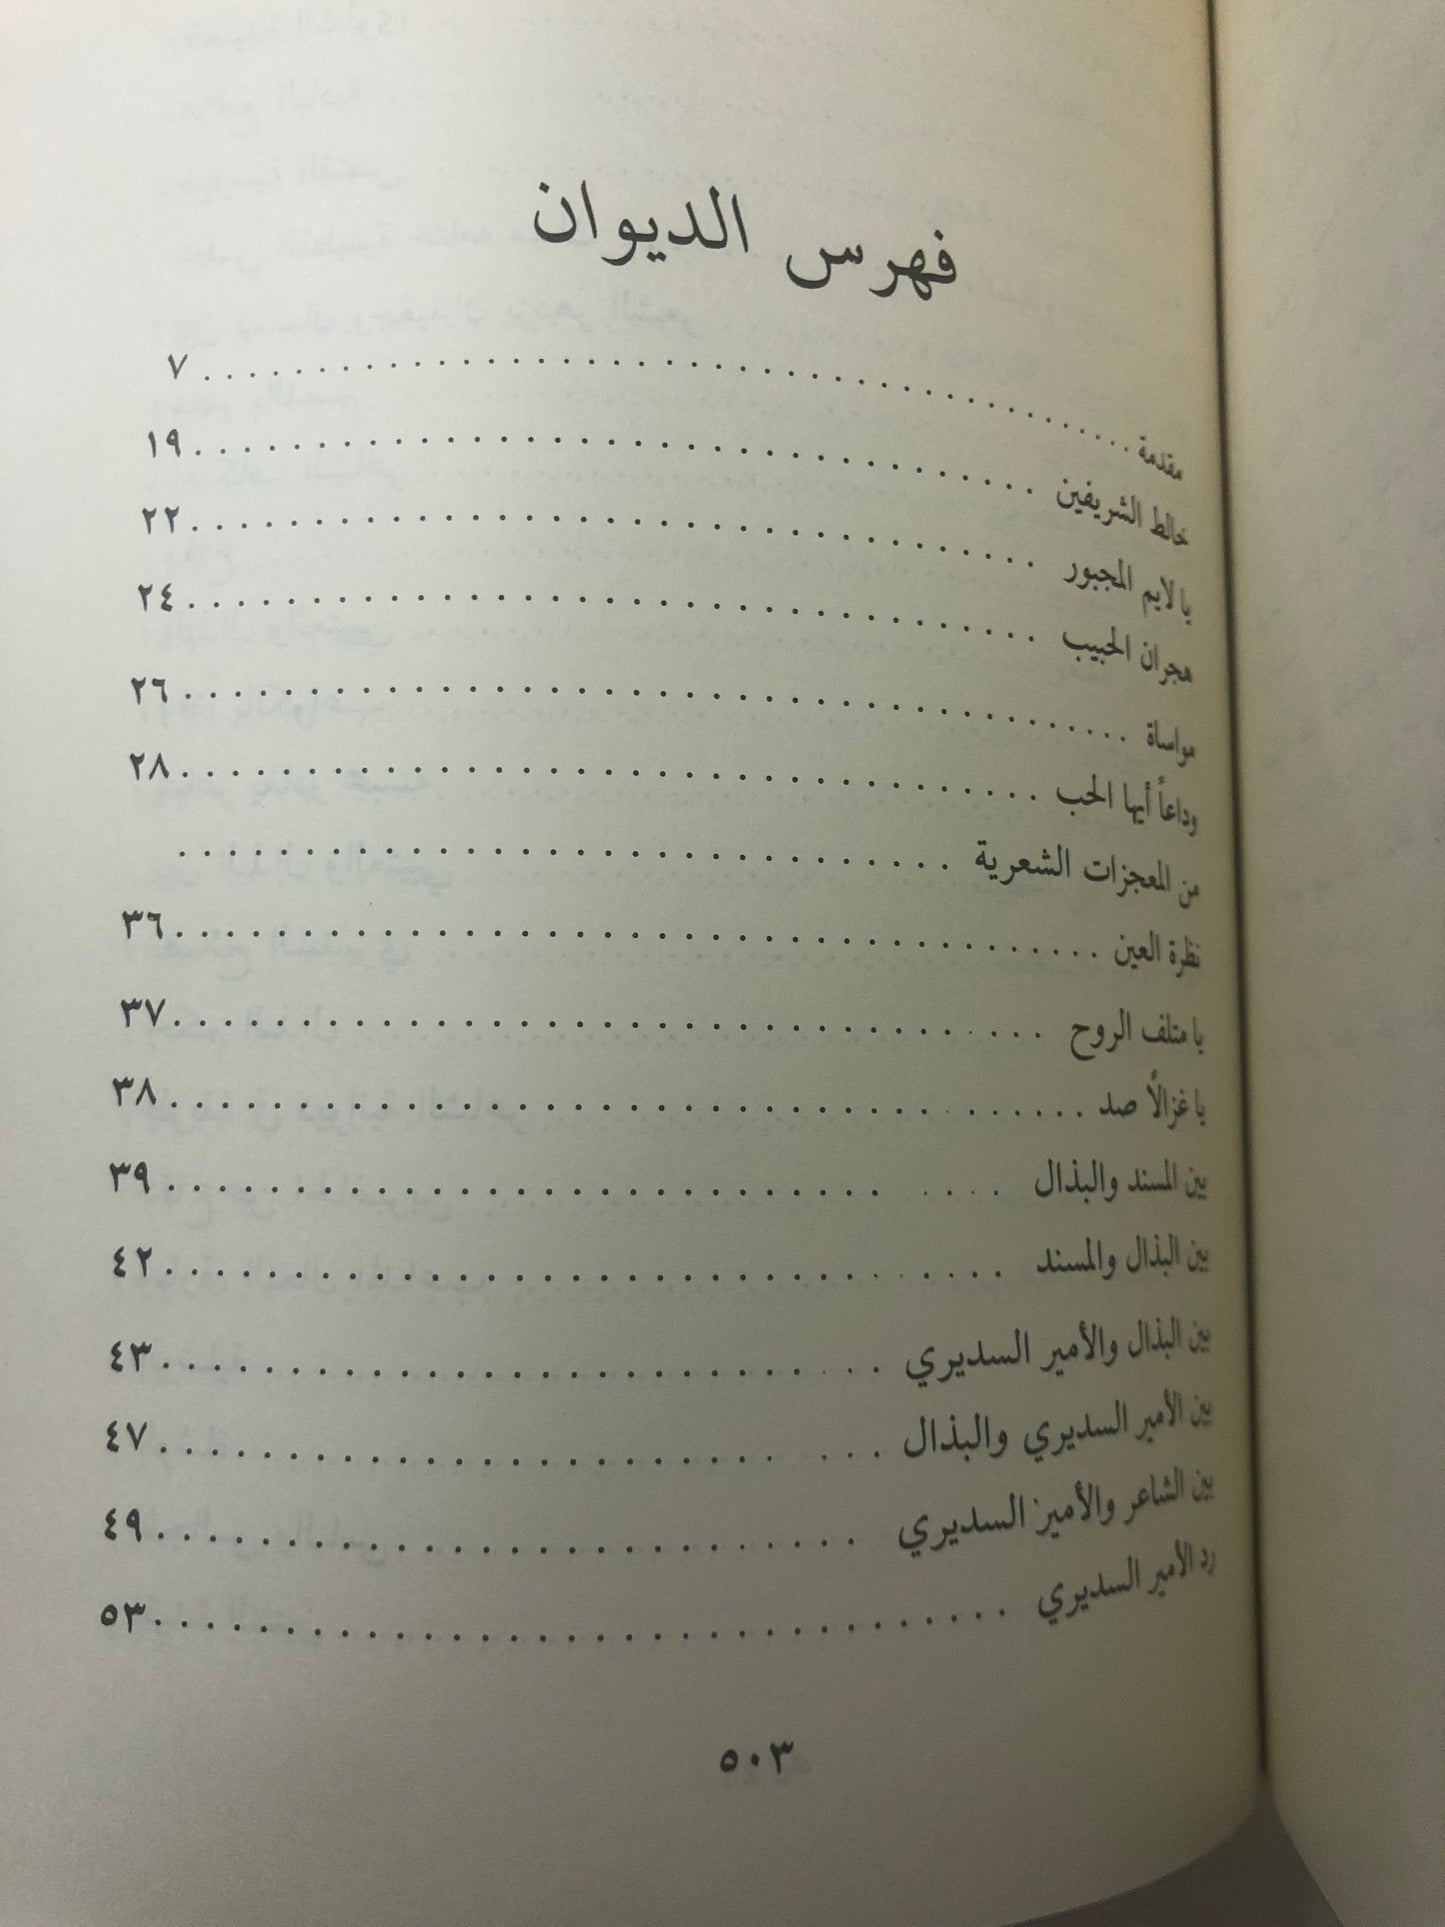 فهرس الديوان
مقدمة . . . . . . . . . . . . . . . . . . . . ٧
خالط الشريفين . . . . . . . . . . . . . . . . . . . . ١٩
يا لايم المجبور . . . . . . . . . . . . . . . . . . . . ٢٢
هجران الحبيب . . . . . . . . . . . . . . . . . . . . ٢٤
مواساة . . . . . . . . . . . . . . . . . . . . ٢٦
وداعاً أيها الحب . . . . . . . . . . . . . . . . . . . . ٢٨
من المعجزات الشعرية . . . . . . . . . . . . . . . . . . . .
نظرة العين . . . . . . . . . . . . . . . . . . . . ٣٦
يا متلف الروح . . . . . . . . . . . . . . . . . . . . ٣٧
يا غزالاً صد . . . . . . . . . . . . . . . . . . . . ٣٨
بين المسند والبذال . . . . . . . . . . . . . . . . . . . . ٣٩
بين البذال والمسند . . . . . . . . . . . . . . . . . . . . ٤٢
بين البذال والأمير السديري . . . . . . . . . . . . . . . . . . . . ٤٣
بين الأمير السديري والبذال . . . . . . . . . . . . . . . . . . . . ٤٧
بين الشاعر والأميز السديري . . . . . . . . . . . . . . . . . . . . ٤٩
رد الأمير السديري . . . . . . . . . . . . . . . . . . . . ٥٣
٥٠٣